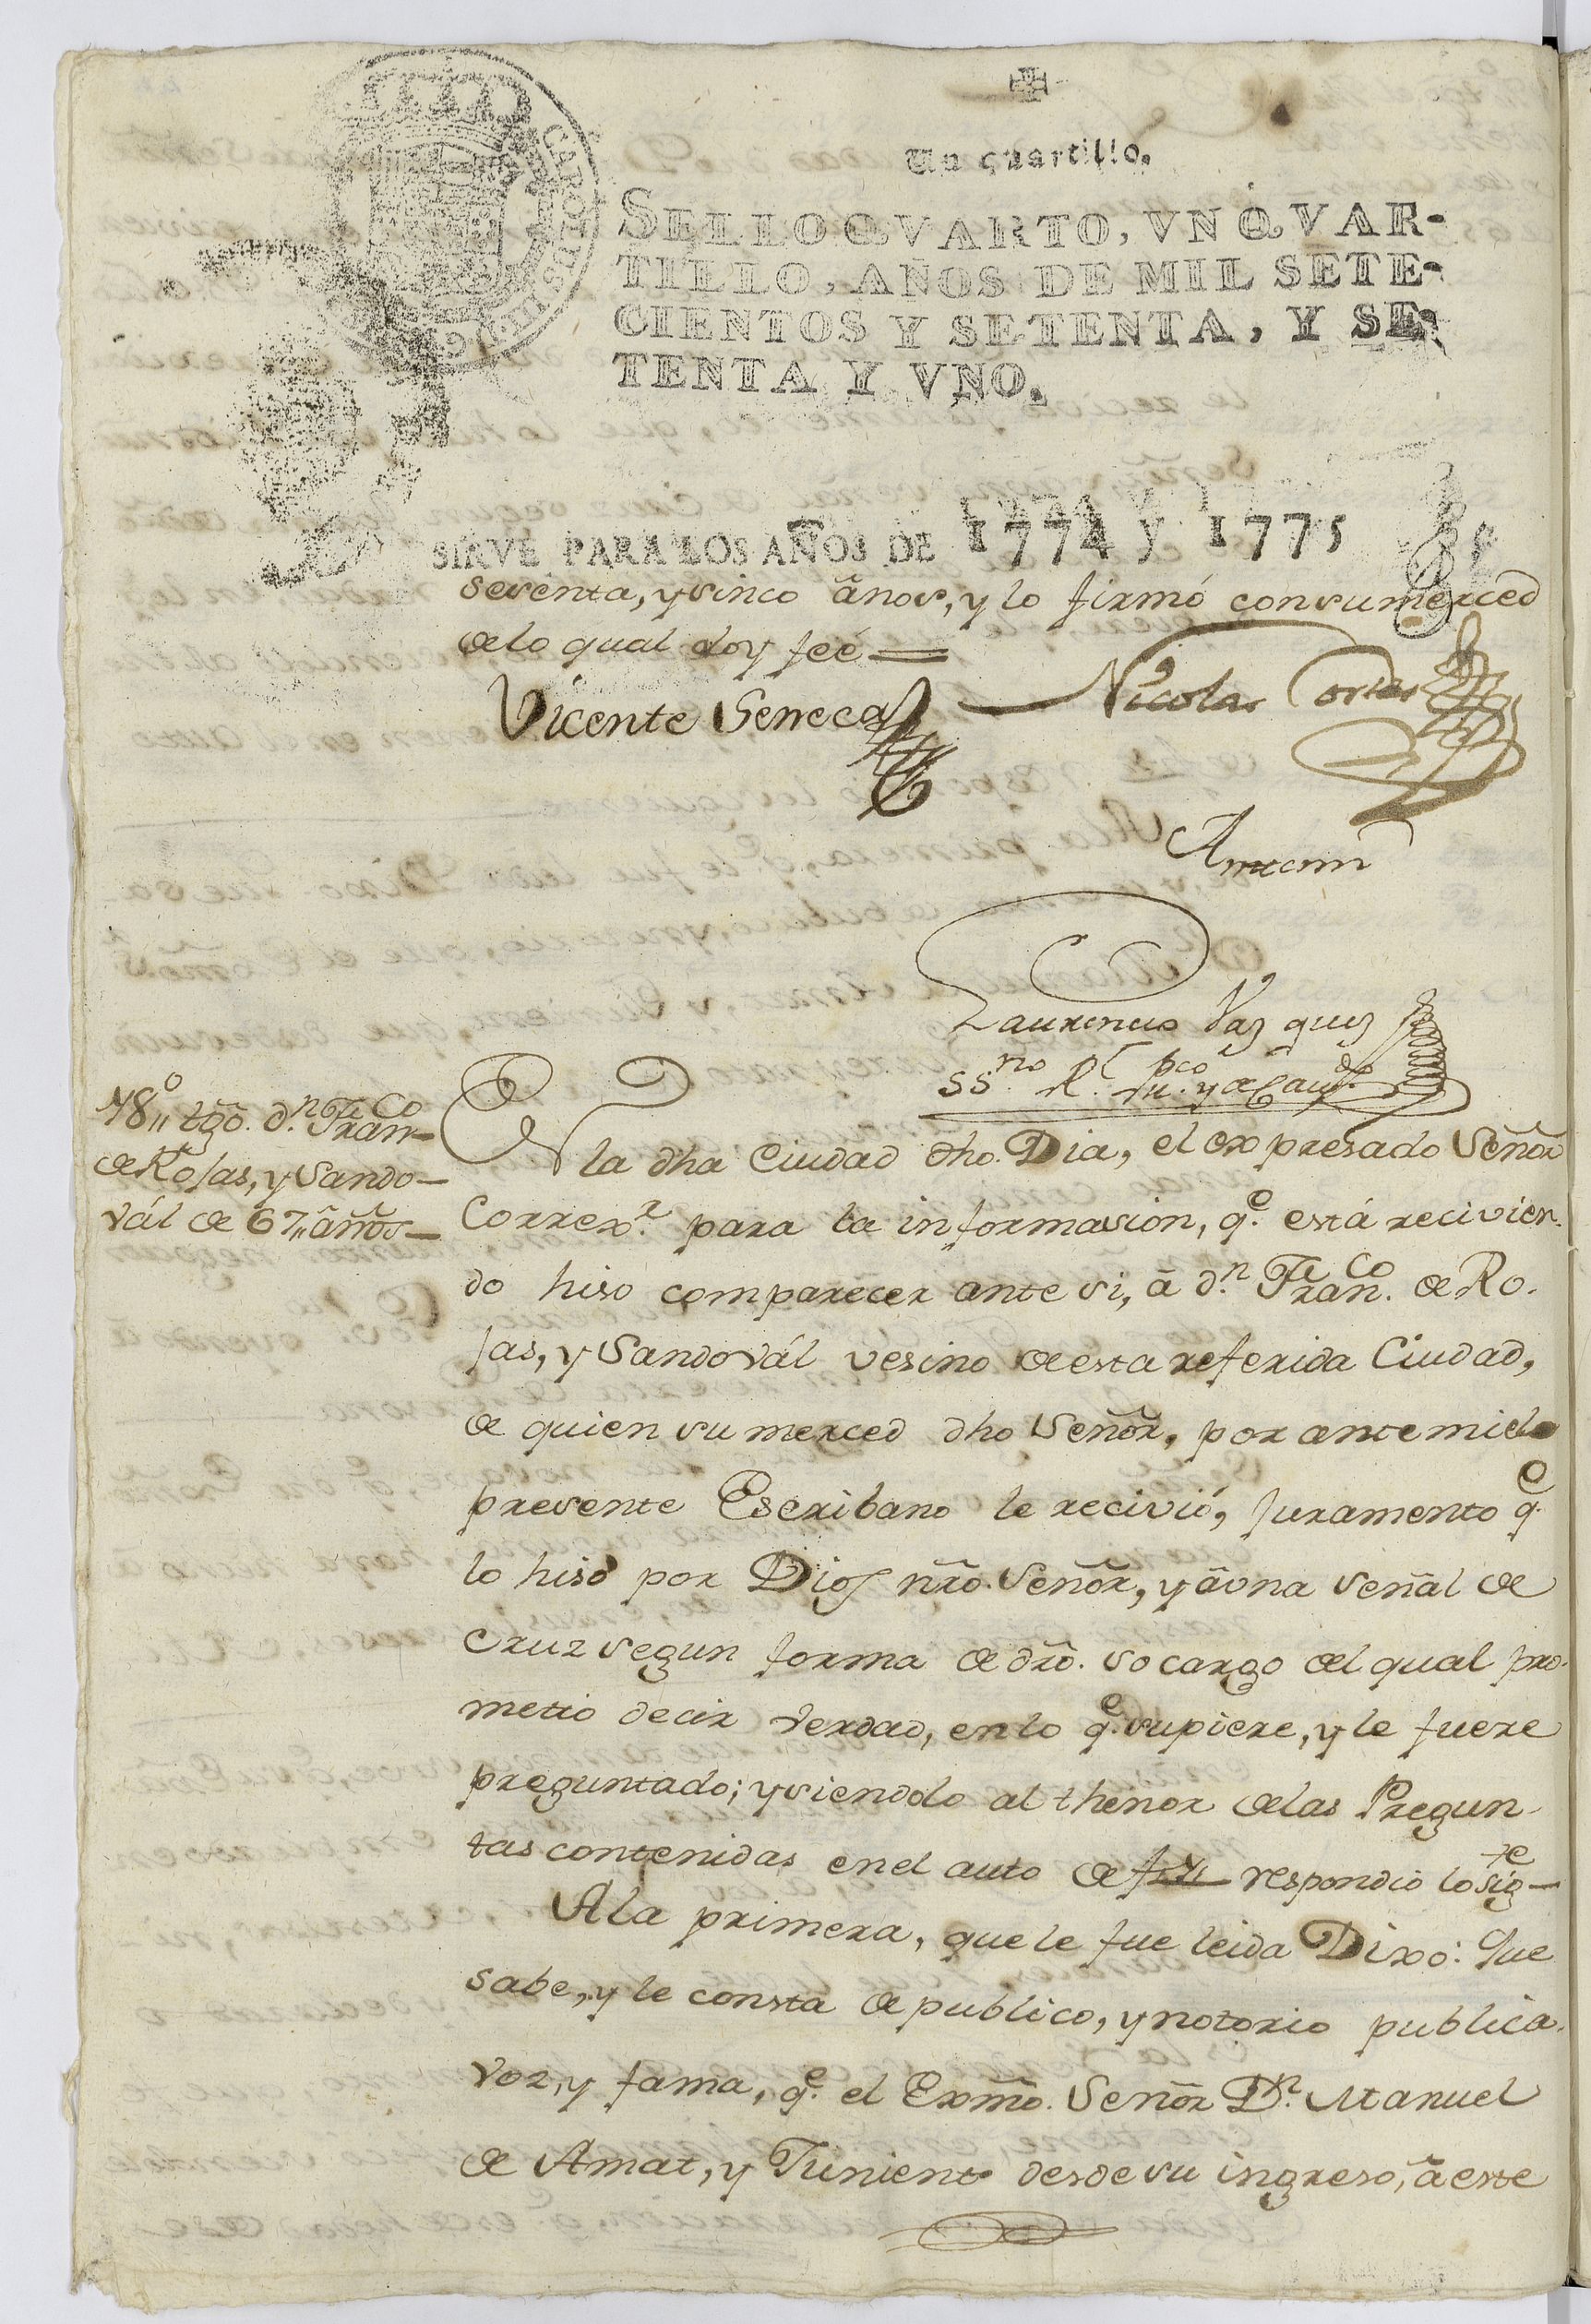 Un cuartillo.
SELLO QVARTO, VN QVAR-
TILLO, AÑOS DE MIL SETE-
CIENTOS Y SETENTA, Y SE-
TENTA Y VNO.
SIRVE PARA LOS AÑOS DE 1774 y 1775
sesenta, y sinco años, y lo firmó con su merced
de lo qual doy feé =
Vicente Seneca Nicolas Cortes
Antemi
Laurencio Vazquez
SSno. Rl. pco. y de Cavdo.
48o,, tgo. dn. Franco.
de Rojas, y Sando-
vál de 67,, años
EN la dha Ciudad dho. Dia, el expresado Señor
Correxr. para la informasion, qe. está recivien-
do hiso comparecer ante si, â dn. Franco. de Ro-
jas, y Sandovál vesino de esta referida Ciudad,
de quien su merced dho Señor, por ante mi el
presente Escribano le recivió, juramento qe.
lo hiso por Dios nro. Señor, y âuna señal de
Cruz segun forma de dro. so cargo del qual pro-
metio decir verdad, en lo qe. supiere, y le fuere
preguntado; y siendolo al thenor de las Pregun-
tas contenidas en el auto de respondio lo sigte
A la primera, que le fue leida Dixo: Que
sabe, y le consta de publico, y notorio publica
voz, y fama, qe. el Exmo. Señor Dn. Manuel
de Amat, y Junient desde su ingreso, â este